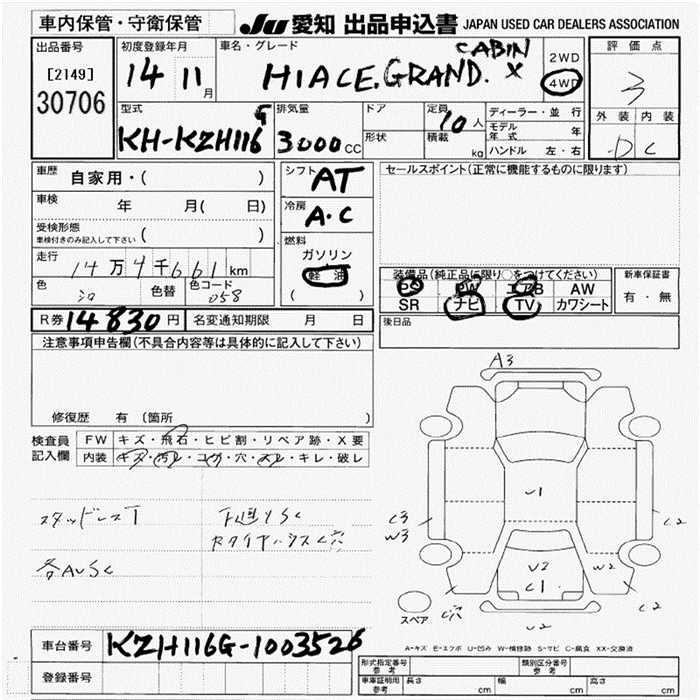 車内保管・守衛保管
JU 愛知 出品申込書 JAPAN USED CAR DEALERS ASSOCIATION
出品番号
[2149]
30706
初度登録年月
14 11月
車名・グレード
CABIN
HIACE. GRAND. X
2WD
4WD
評価点
3
外装 内装
D C
型式
KH-KZH116G
排気量
3000cc
ドア
形状
定員 10人
積載 kg
ディーラー・並行
モデル年式 年
ハンドル 左・右
車歴 自家用・( )
車検 年 月( 日)
受検形態 ( )
車検付きのみ記入して下さい
走行 14万4千661km
色 シロ 色替 色コード 058
シフト AT
冷房 A・C
燃料
ガソリン
軽油
( )
セールスポイント(正常に機能するものに限ります)
装備品(純正品に限り○をつけてください)
PS PW エアB AW
SR ナビ TV カワシート
新車保証書
有・無
R券 14830円 名変通知期限 月 日
後日品
注意事項申告欄(不具合内容等は具体的に記入して下さい)
修復歴 有〔箇所
検査員記入欄
FW キズ・飛石・ヒビ割・リペア跡・X要
内装 キズ・汚レ・コゲ・穴・スレ・キレ・破レ
スタッドレスT
各AUSC
下廻りSC
A3
U1
C3
W3
C2
U2
C1
W2
C2
C穴
U2
スペア
A-キズ E-エクボ U-凹み W-補修跡 S-サビ C-腐食 XX-交換済
車台番号 KZH116G-1003526
登録番号
形式指定番号 参考
類別区分番号 参考
車庫証明用 参考 長さ cm 幅 cm 高さ cm